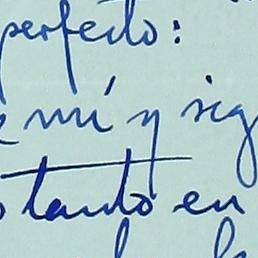 perfecto:
mí y sig
tanto en